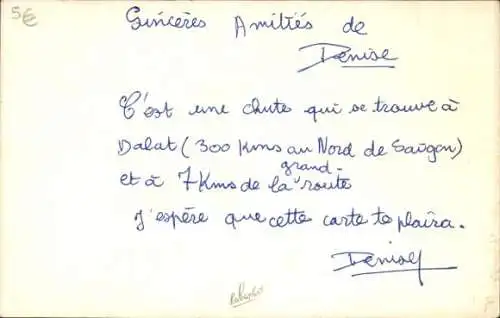 5€
Sincères Amitiés de
Denise
C'est une chute qui se trouve à
Dalat (300 Kms au Nord de Saïgon)
et à 7 Kms de la grand-route
J'espère que cette carte te plaira.
Denise